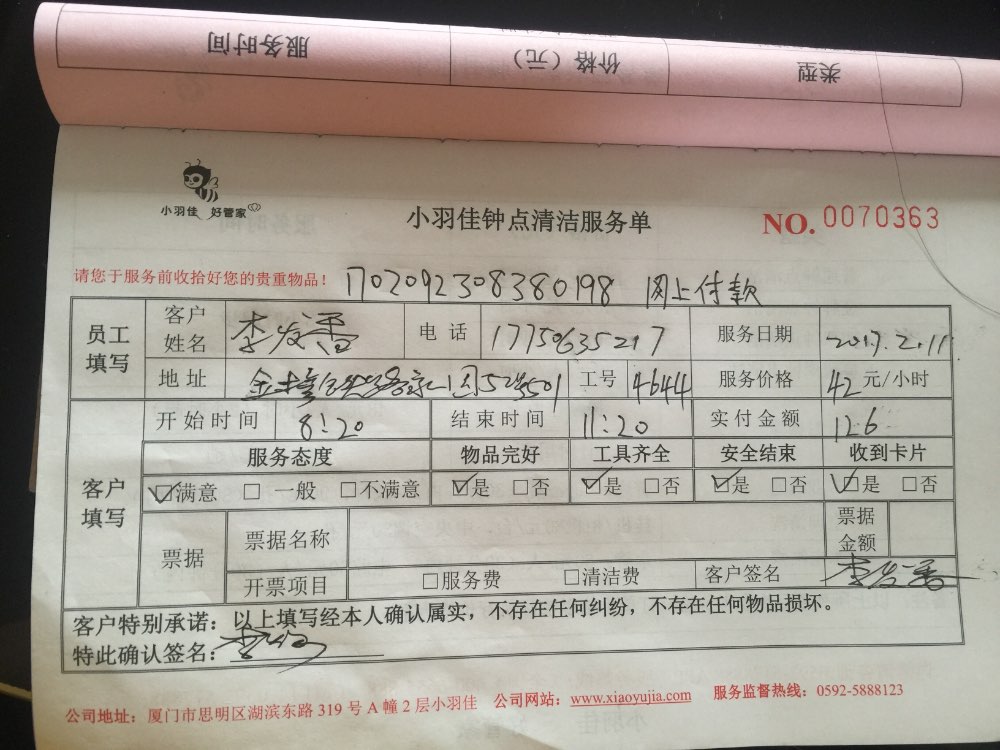 服务时间 价格（元） 类型
小羽佳 好管家
小羽佳钟点清洁服务单
NO. 0070363
请您于服务前收拾好您的贵重物品！ 1702092308380198 网上付款
员工填写 客户姓名 李 电话 17750635217 服务日期 2017.2.11
地址 工号 4644 服务价格 42 元/小时
客户填写 开始时间 8:20 结束时间 11:20 实付金额 126
服务态度 物品完好 工具齐全 安全结束 收到卡片
☑满意 □一般 □不满意 ☑是 □否 ☑是 □否 ☑是 □否 ☑是 □否
票据 票据名称 票据金额
开票项目 □服务费 □清洁费 客户签名 李
客户特别承诺：以上填写经本人确认属实，不存在任何纠纷，不存在任何物品损坏。
特此确认签名：李
公司地址：厦门市思明区湖滨东路 319 号 A 幢 2 层小羽佳 公司网站：www.xiaoyujia.com 服务监督热线：0592-5888123